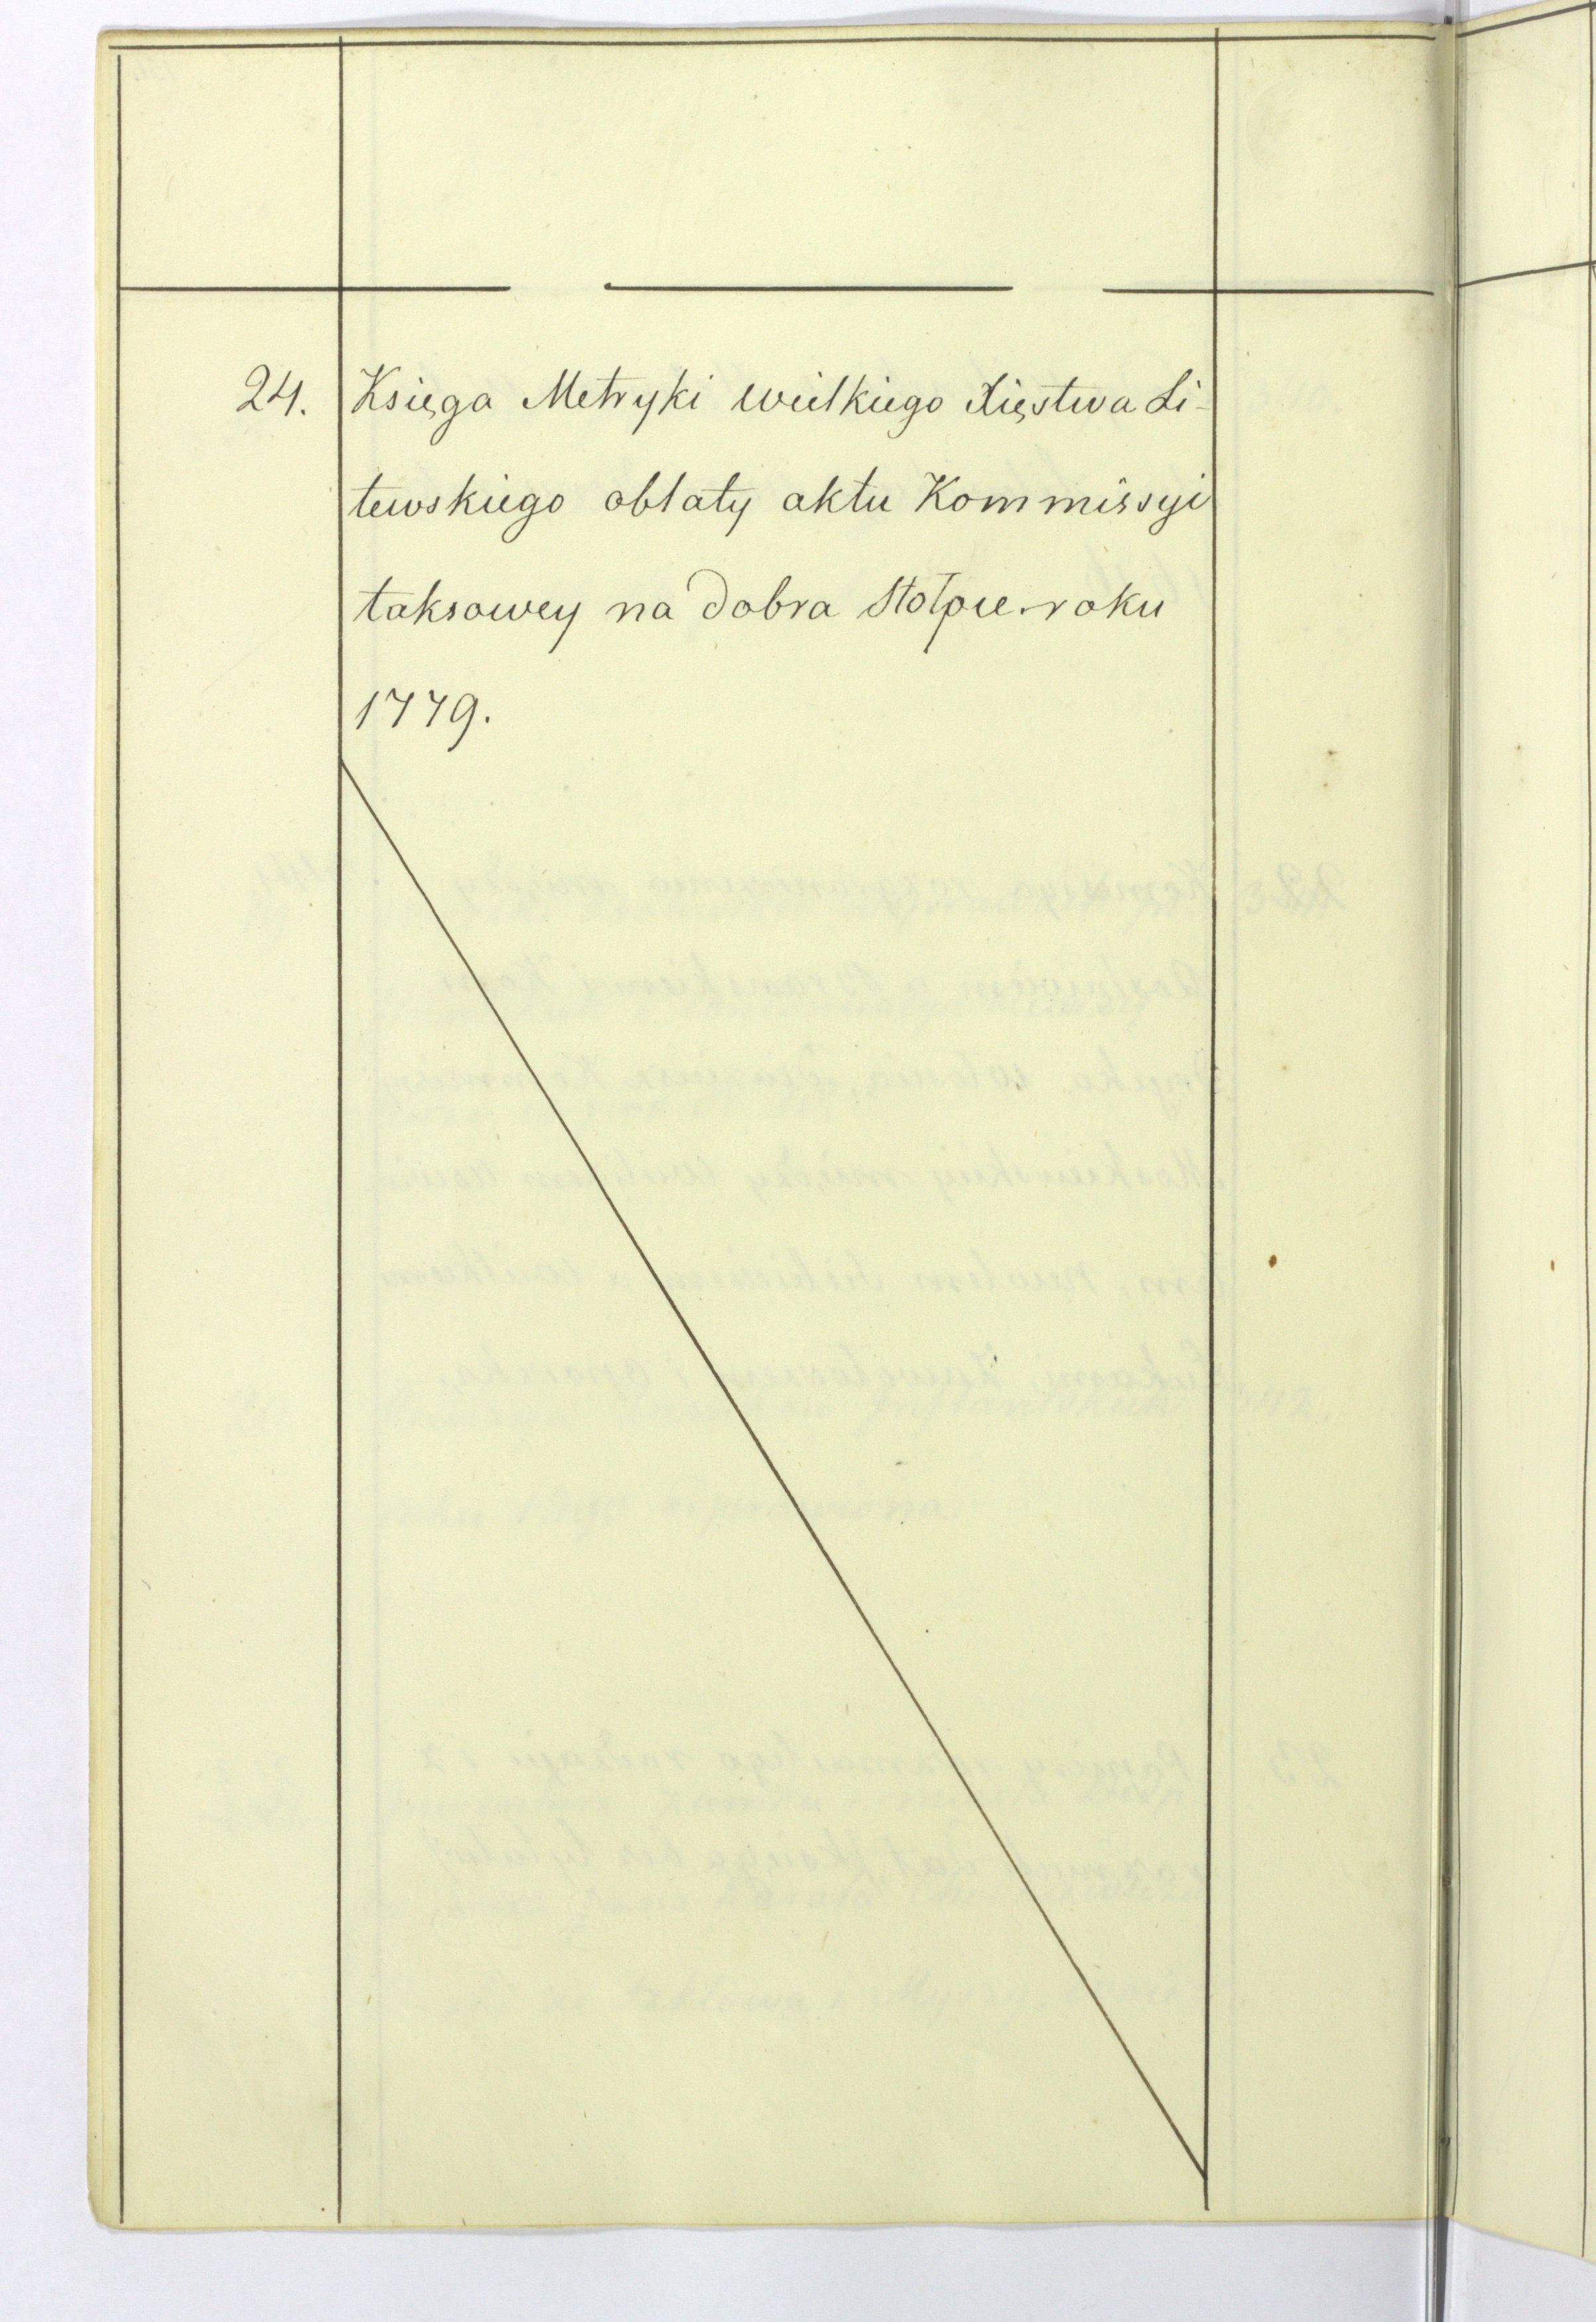 24. Księga Metryki wielkiego Xięstwa Li-
tewskiego oblaty aktu Kommissyi
taksowey na dobra Stołpce roku
1779.